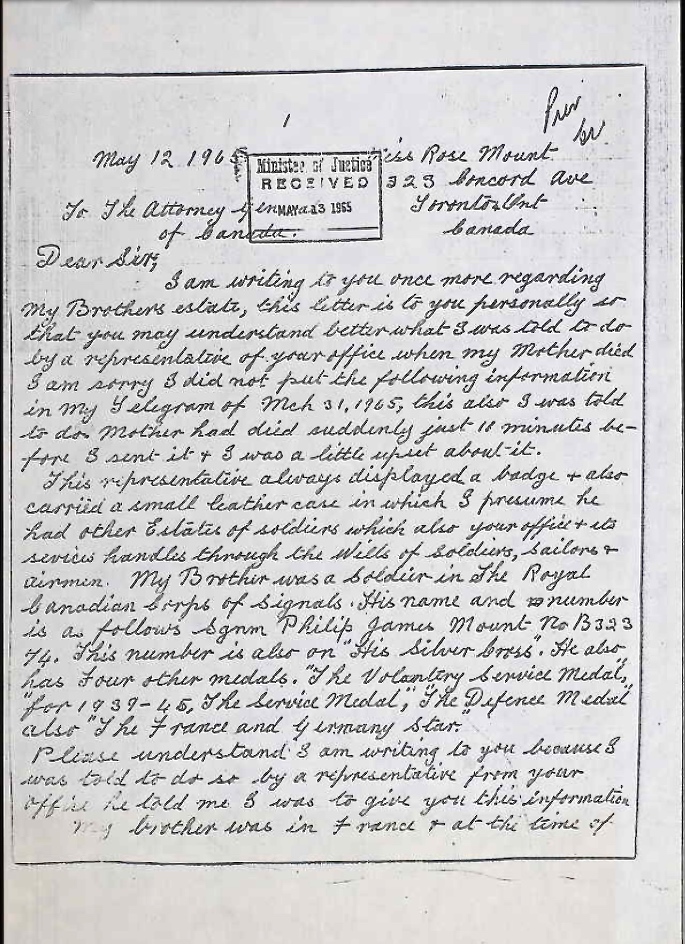 1
May 12 196
Miss Rose Mount
323 Concord Ave
Toronto Ont
Canada
Minister of Justice
RECEIVED
MAY 13 1965
To The Attorney Gen
of Canada.
Dear Sir,
I am writing to you once more regarding
My Brothers estate, this letter is to you personally so
that you may understand better what I was told to do
by a representative of your office when my Mother died
I am sorry I did not put the following information
in my Telegram of Mch 31, 1965, this also I was told
to do. Mother had died suddenly just 10 minutes be-
fore I sent it + I was a little upset about it.
This representative always displayed a badge + also
carried a small leather case in which I presume he
had other Estates of soldiers which also your office + its
sevices handles through the Wills of Soldiers, Sailors +
airmen. My Brother was a Soldier in The Royal
Canadian Corps of Signals. His name and number
is as follows Sgnm Philip James Mount No B323
74. This number is also on "His Silver Cross". He also
has Four other medals. "The Voluntery Service Medal,"
"for 1939-45, The Service Medal", "The Defence Medal"
also "The France and Germany Star."
Please understand I am writing to you because I
was told to do so by a representative from your
office he told me I was to give you this information
My brother was in France + at the time of